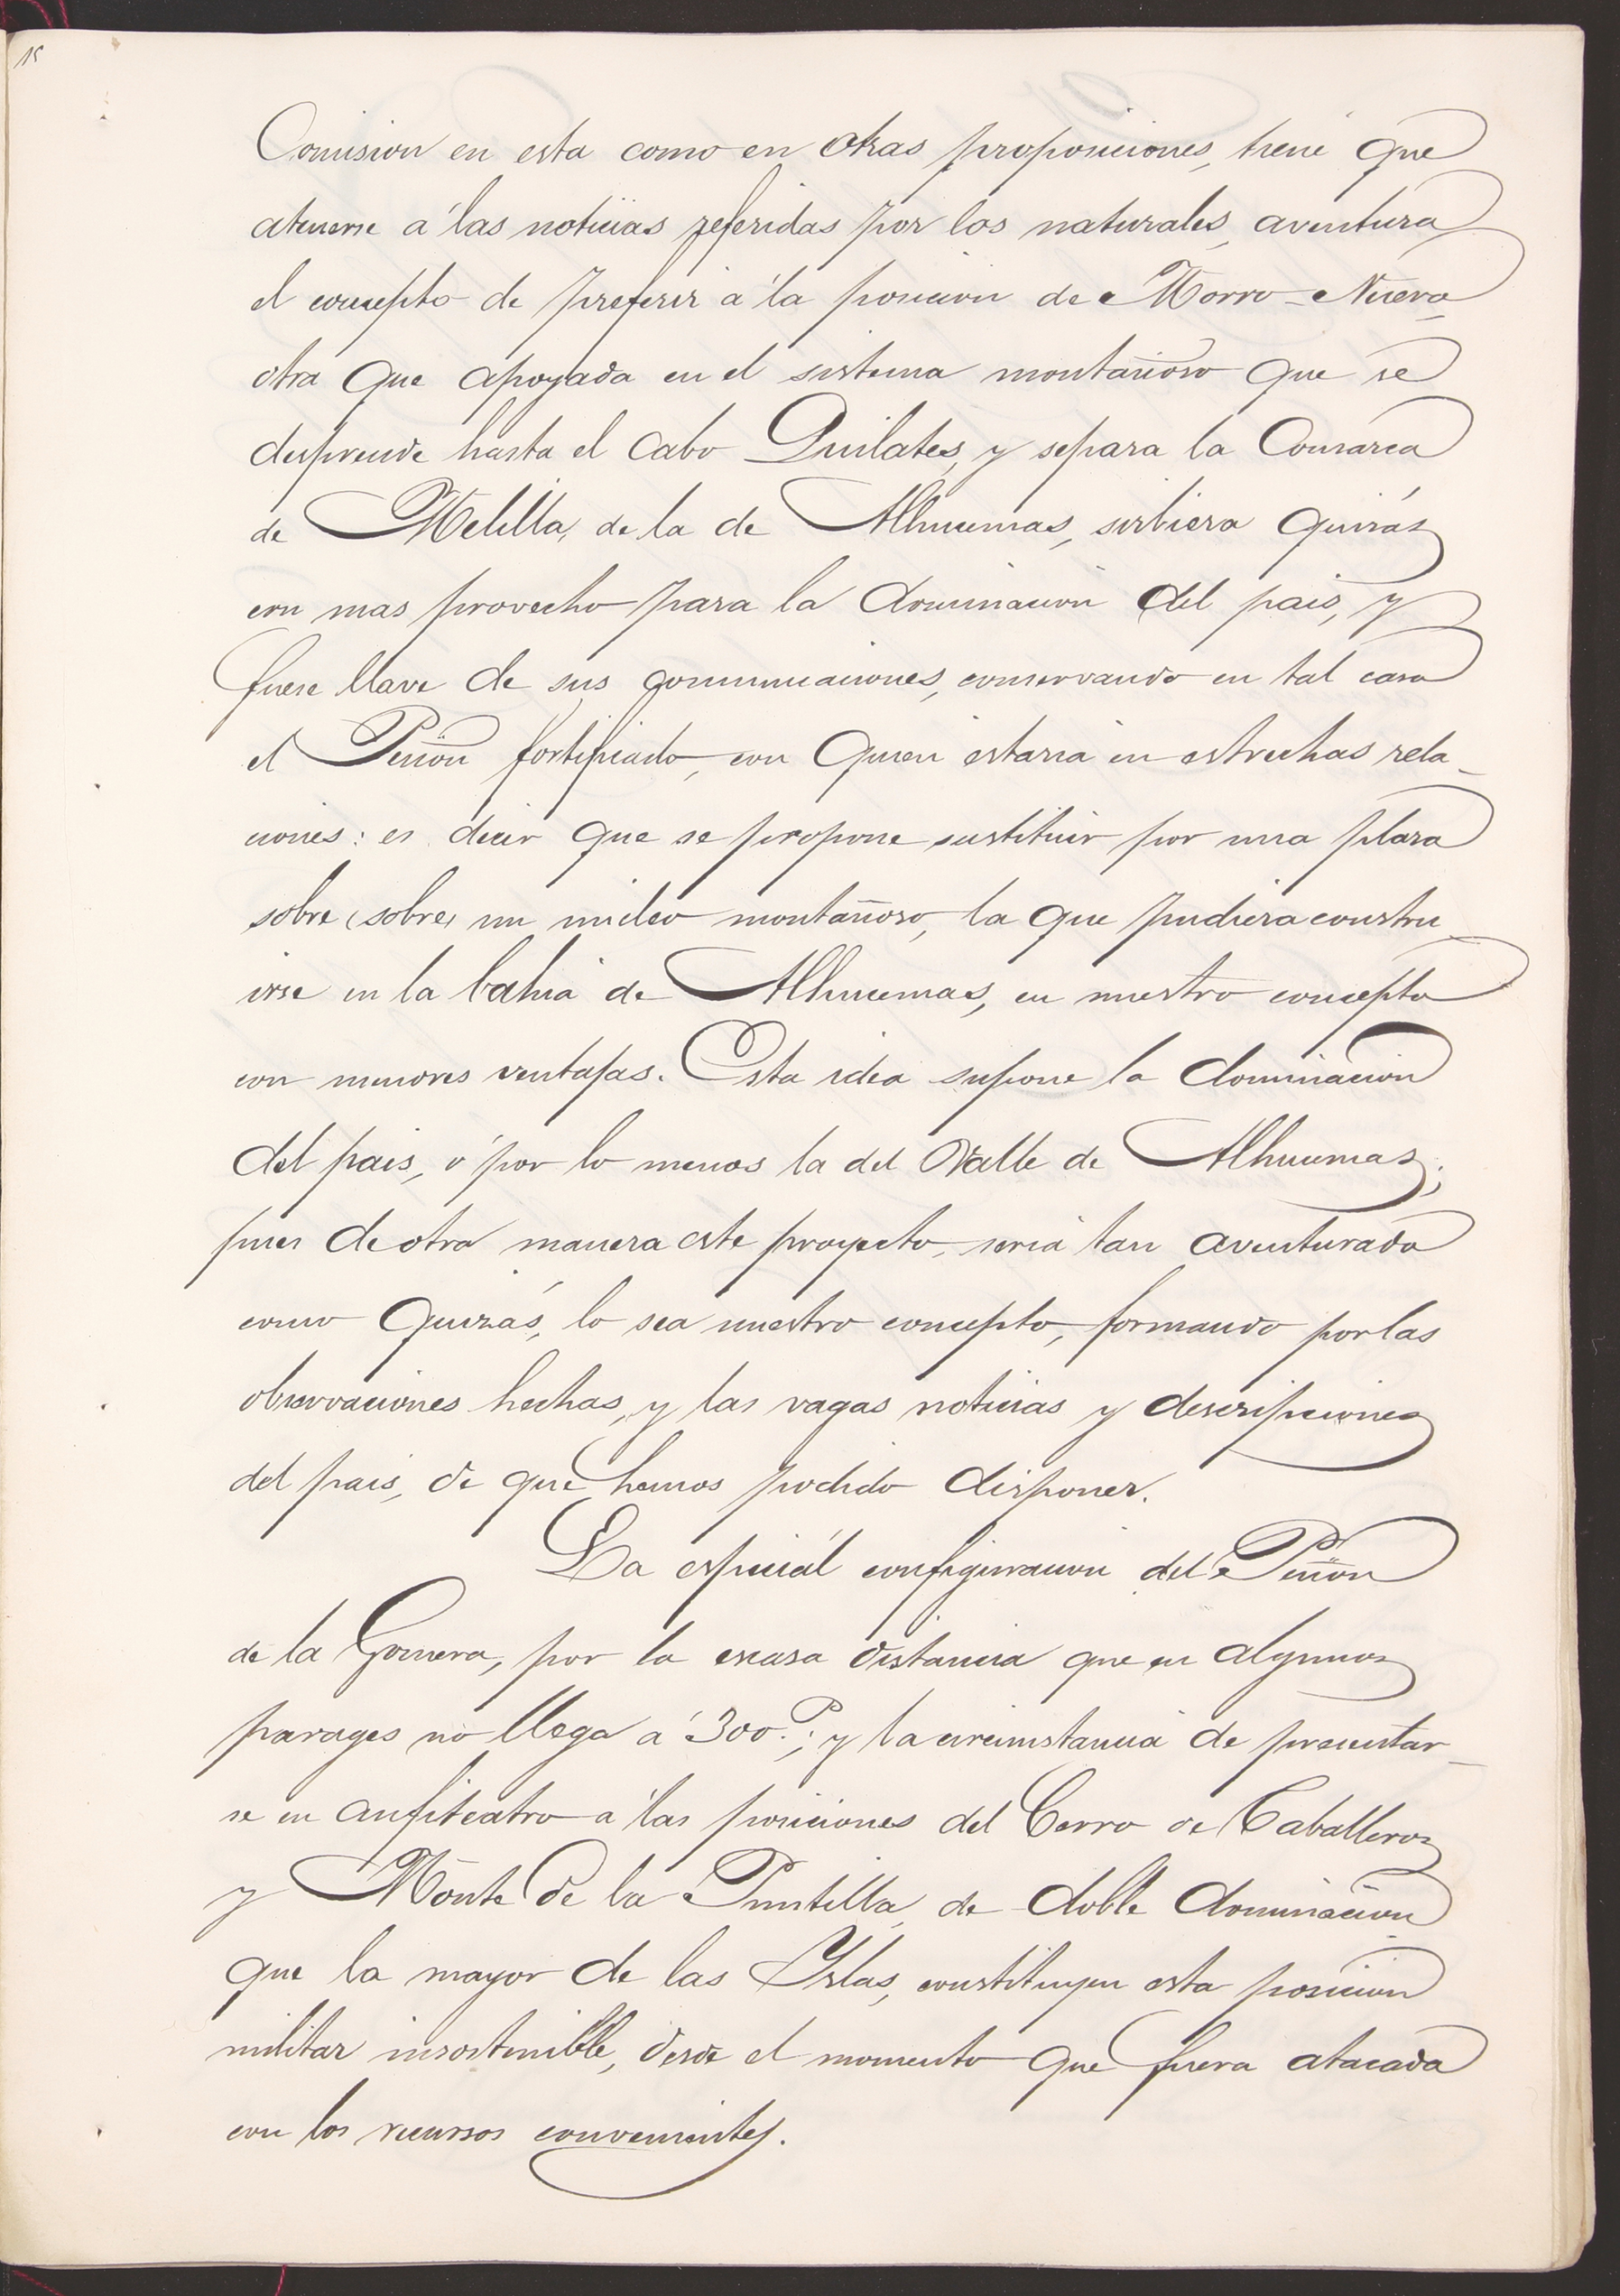 15
Comision en esta como en otras proposiciones, tiene que
atenerse á las noticias referidas por los naturales, aventura
el concepto de preferir á la posicion de Morro-Nuevo,
otra que apoyada en el sistema montañoso que se
desprende hasta el Cabo Quilates, y separa la Comarca
de Melilla, de la de Alhucemas, sirbiera quizás
con mas provecho para la dominacion del pais, y
fuese llave de sus comunicaciones, conservando en tal caso
el Peñon fortificado, con quien estaria en estrechas rela-
ciones: es decir que se propone sustituir por una plaza
sobre (sobre) un nucleo montañoso, la que pudiera constru
irse en la bahia de Alhucemas, en nuestro concepto
con menores ventajas. Esta idea supone la dominacion
del pais, ó por lo menos la del Valle de Alhucemas;
pues de otra manera este proyecto, seria tan aventurado
como quizás, lo sea nuestro concepto, formando por las
observaciones hechas, y las vagas noticias y descripciones
del pais, de que hemos podido disponer.
La especial configuracion del Peñon
de la Gomera, por la escasa distancia que en algunos
parages no llega á 300.P; y la circunstancia de presentar-
se en anfiteatro á las posiciones del Cerro de Caballeros
y Monte de la Puntilla, de doble dominacion
que la mayor de las Yslas, constituyen esta posicion
militar insostenible, desde el momento que fuera atacada
con los recursos convenientes.